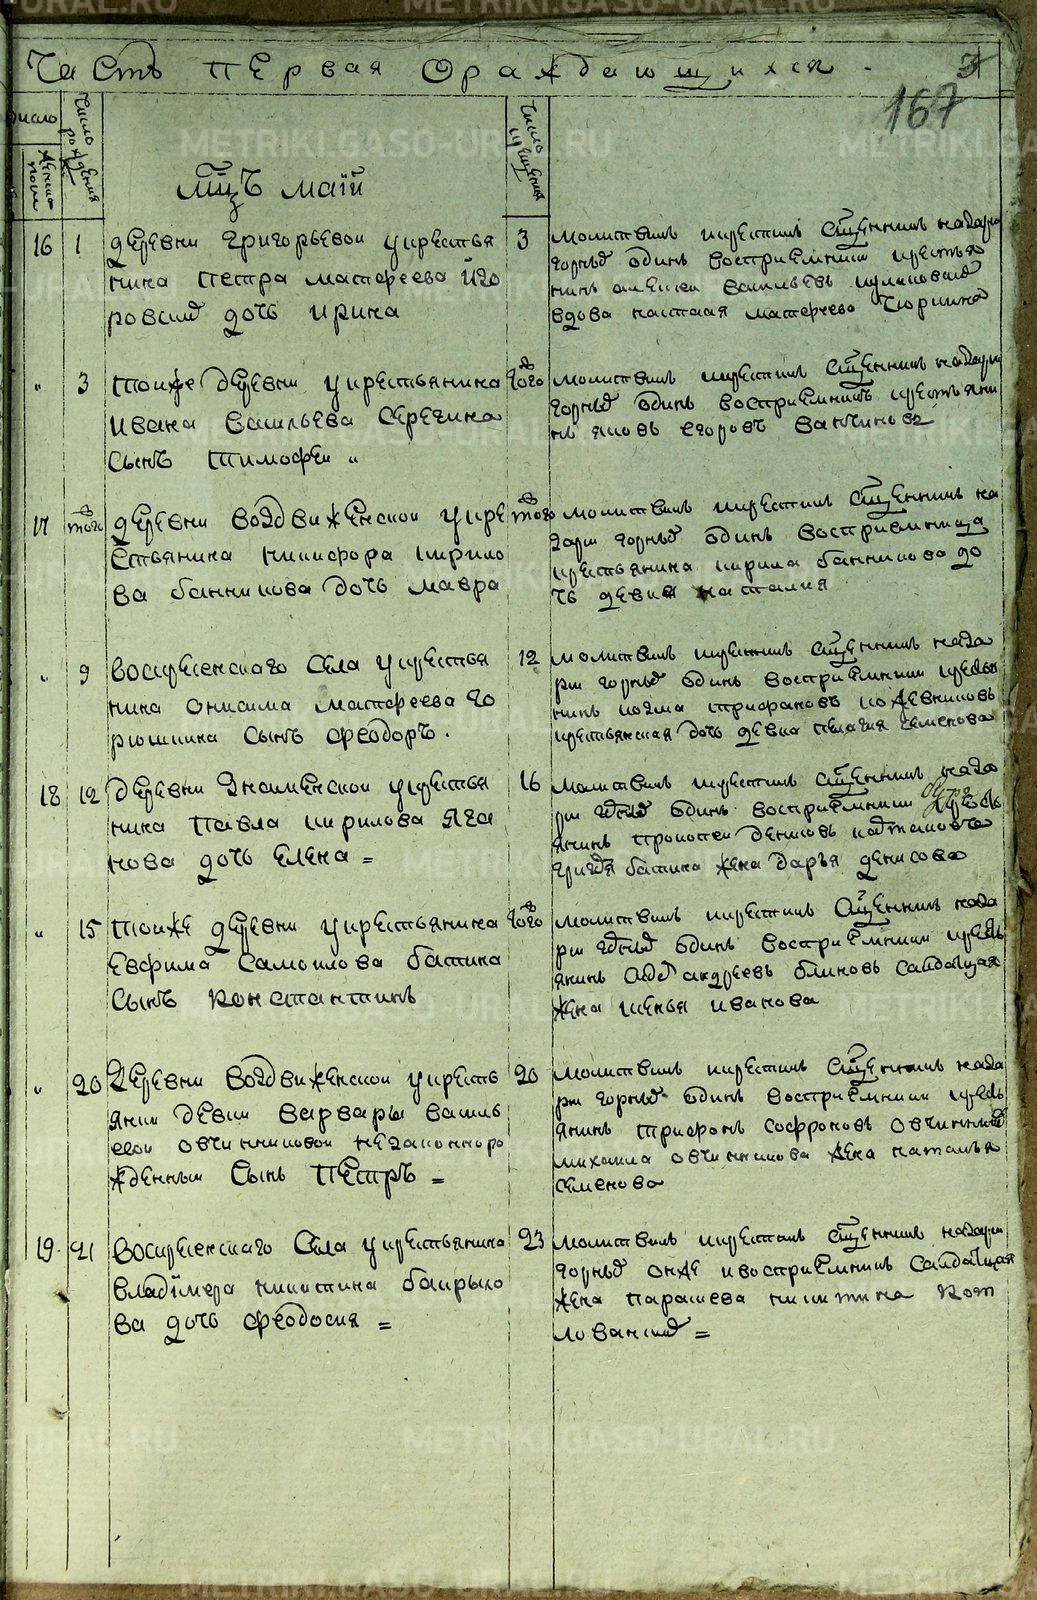 METRIKI.GASO-URAL.RU
Часть первая Ораждающихся
167
число
женска полу
Число рождения
Число крещения
Мцъ маїй
16 1 деревни григорьевои укрестья
нина петра матфеева Его
ровских дочь ирина
3 молитвилъ икрестилъ Сщенникъ назарии
горных одинъ восприемники крестья
нинъ алексеи васильевъ куликовских
вдова настасия матфеева Тюрина
„ 3 тоиже деревни укрестьянина
ивана васильева Серегина
сынъ тимофеи „
того молитвилъ икрестилъ Сщенникъ назарии
горных одинъ восприемникъ крестьяни
нъ яковъ егоровъ
17 того деревни воздвиженскои укре
стьянина никифора кирило
ва банникова дочь мавра
того молитвилъ икрестилъ Сщенникъ на
зари горных одинъ восприемница
крестьянина кирила банникова до
чь девка наталия
„ 9 воскресенского Села укрестья
нина онисима матфеева го
рюшкина Сынъ феодоръ.
12 молитвилъ икрестилъ Сщенникъ наза
рии горных одинъ восприемники крестья
нинъ козма трифановъ кожевниковъ
крестьянская дочь девка пелагия семенова
18 12 деревни Знаменскои укрестья
нина павла кирилова Яга
нова дочь елена =
16 молитвилъ икрестилъ Сщенникъ наза
рии одинъ восприемники крестья
янинъ прокопеи денисовъ
батина жена дарья денисова
„ 15 тоиже деревни укрестьянина
Евфима Самоилова батина
сынъ константинъ
того молитвилъ икрестилъ Сщенникъ наза
рии одинъ восприемники кресть
янинъ блиновъ салдацкая
жена ксенья иванова
„ 20 Деревни воздвиженскои укресть
янки девки варвары василь
евои овчинниковои незаконноро
жденныи Сынъ петръ =
20 молитвилъ икрестилъ Сщенникъ наза
рии горных одинъ восприемники кресть
янинъ трифонъ софроновъ овчинник
михаила овчинникова жена наталья
семенова
19. 21 воскресенского Села укрестьянина
владїмера никитина баирыко
ва дочь феодосия =
23 молитвилъ икрестилъ Сщенникъ назарии
горных онже ивосприемникъ салдацкая
жена параскева никитина кот
лованских =